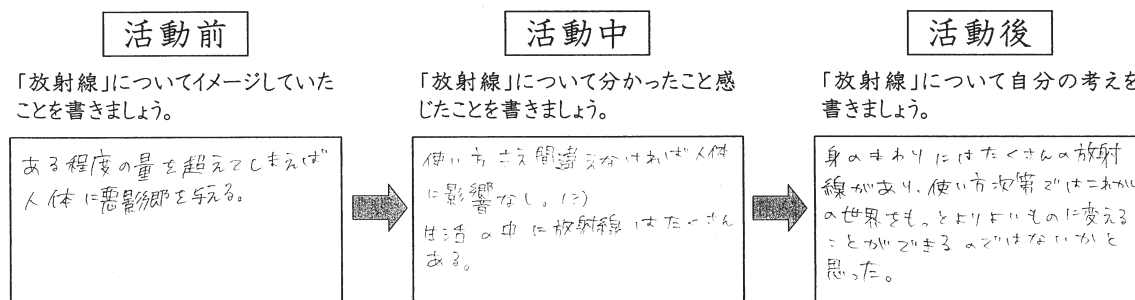 活動前
「放射線」についてイメージしていた
ことを書きましょう。
ある程度の量を超えてしまえば
人体に悪影響を与える。
活動中
「放射線」について分かったこと感
じたことを書きましょう。
使い方さえ間違えなければ人体
に影響なし。(?)
生活の中に放射線はたくさん
ある。
活動後
「放射線」について自分の考えを
書きましょう。
身のまわりにはたくさんの放射
線があり、使い方次第ではこれから
の世界をもっとよりよいものに変える
ことができるのではないかと
思った。